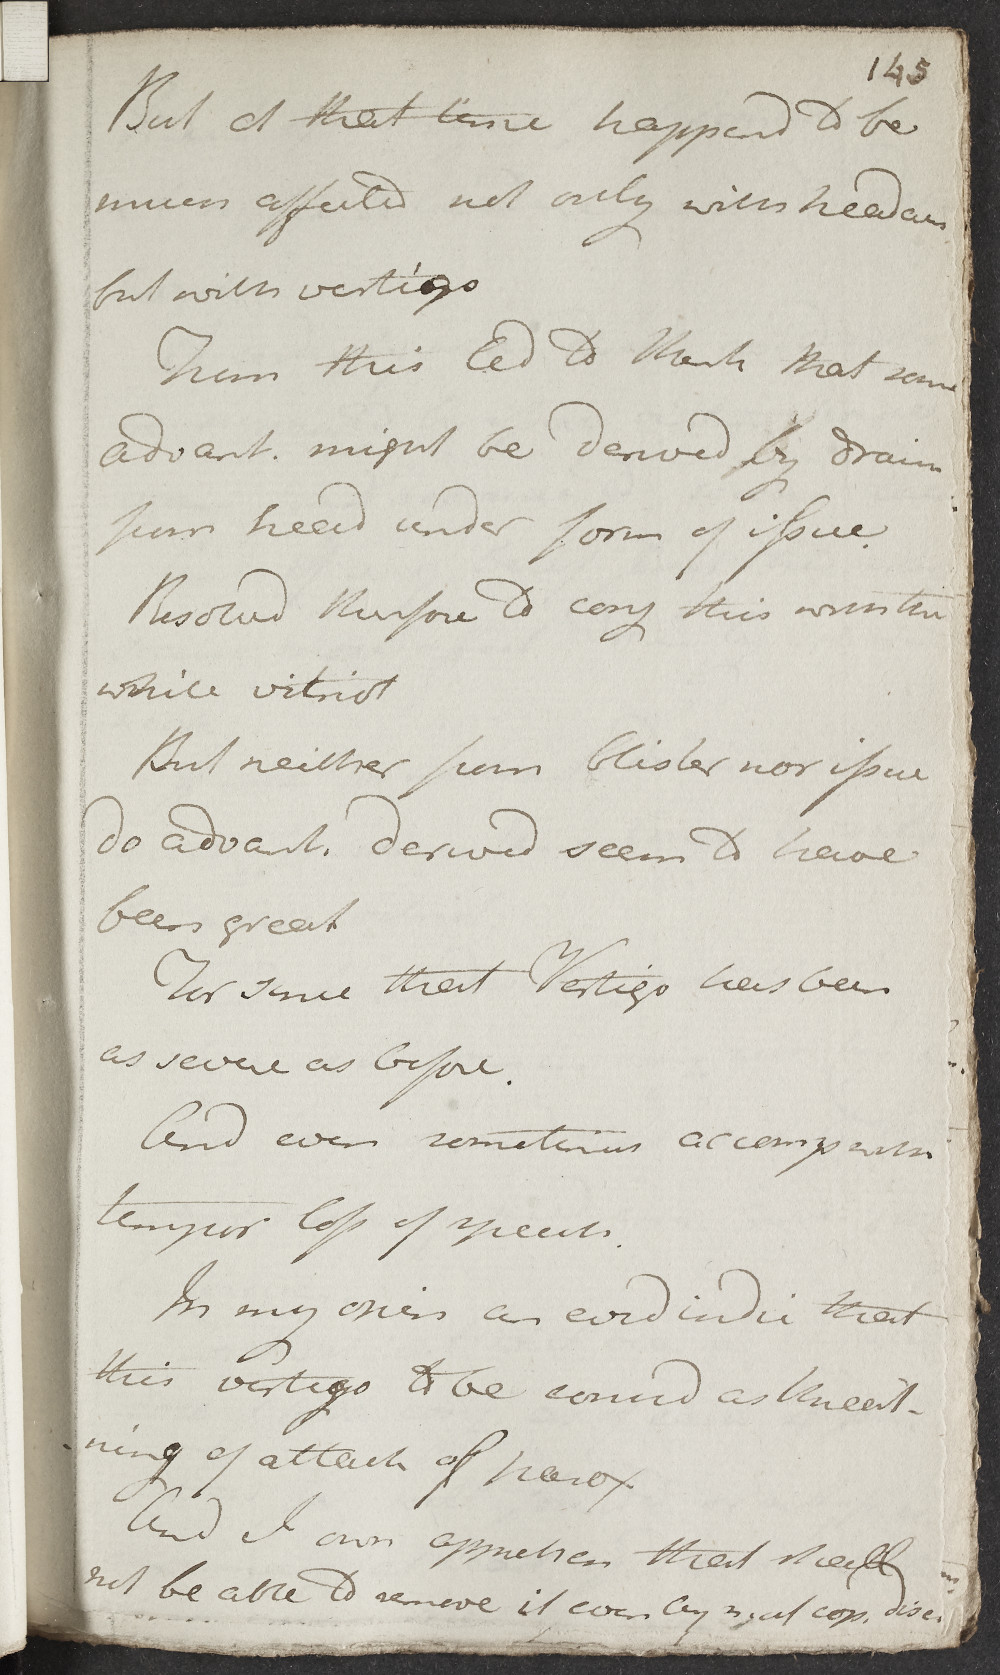 145
But at that time happend to be
much affected not only with headach
but with vertigo
From this led to think that some
advant. might be derived by drain
from head under form of issue.
Resolved therfore to conj this with the
white vitriol
But neither from blister nor issue
do advant. derived seem to have
been great
For since that Vertigo has been
as severe as before.
And even sometimes accomp with
tempor loss of speech.
In my opin an evid indic that
this vertigo to be consid as threat-
ning of attack of parox
And I own apprehen that shall
not be able to remove it even by cop.